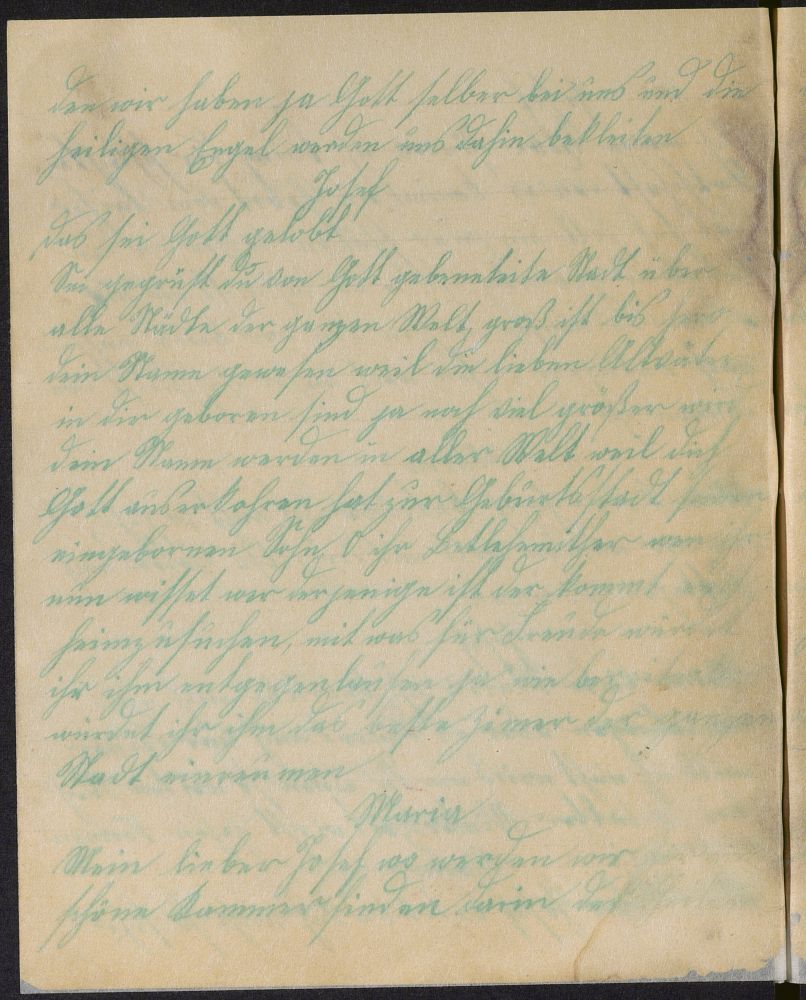 den wir haben ja Gott selber bei uns und die
heiligen Engel werden uns dahin bekleiten
Josef
Das sei Gott gelobt
Sei gegrüst du von Gott gebeneteite Stadt über
alle Städte der ganzen Welt, groß ist bis
dein Name gewesen weil die lieben Altväter
in dir geboren sind ja noch viel größer wird
dein Name werden in aller Welt weil dich
Gott auserkohren hat zur Geburtsstadt seinen
eingebornen Sohn O ihr Betlehemither wen ihr
nun wisset wer derjenige ist der kommt euch
heimzusuchen, mit was für Freude würdet
ihr ihm entgegenlaufen ja wie
würdet ihr ihm das beste Zimer der ganzen
Stadt einreumen
Maria
Mein lieber Josef wo werden wir
schöne Kammer finden darin der